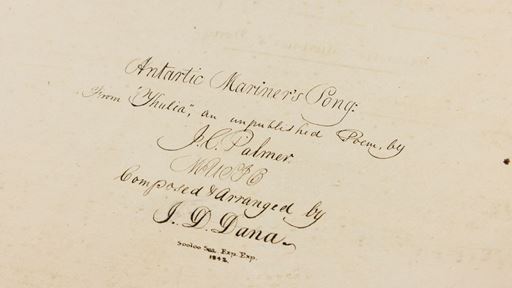 Antartic Mariner's Song.
From "Thulia", an unpublished Poem, by
J. C. Palmer.
MUSIC
Composed & arranged by
J. D. Dana.
Sooloo Sea, Exp. Exp.
1842.